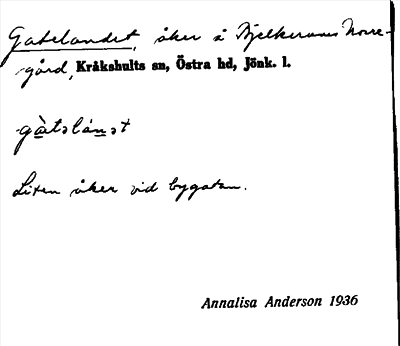 Gatelandet, åker å Bjelkerums Norre-
gård, Kråkshults sn, Östra hd, Jönk. l.
gàtəlánət
Liten åker vid bygatan.
Annalisa Anderson 1936